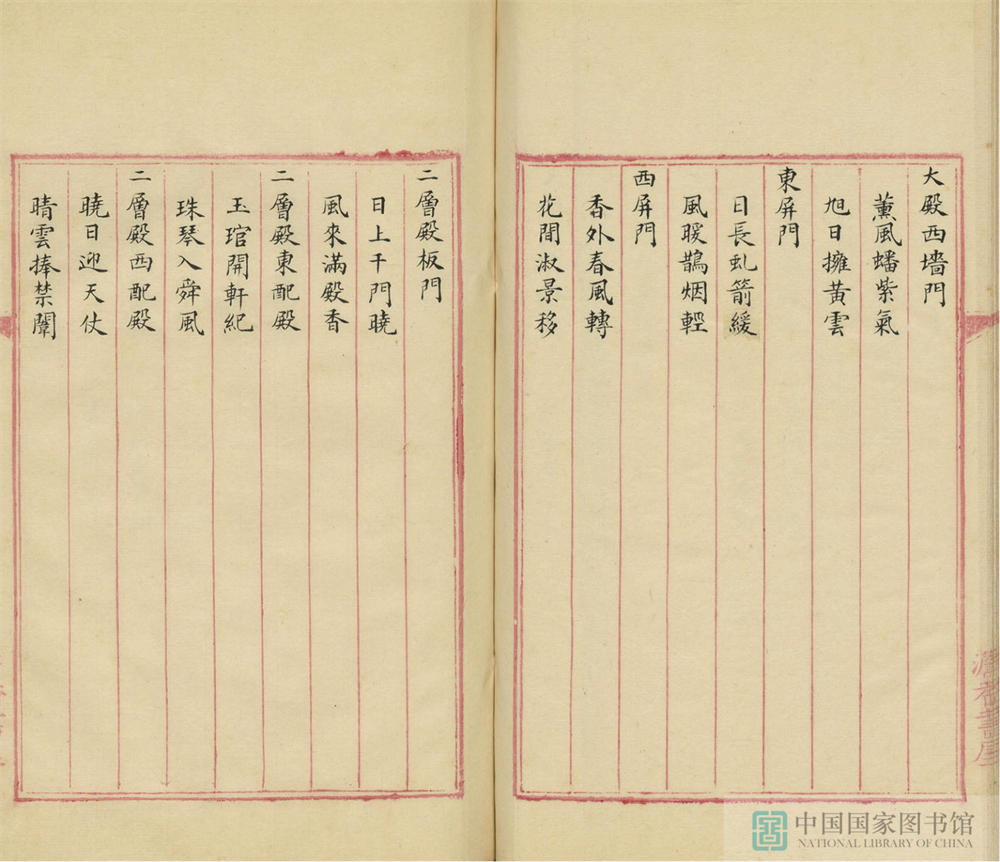 大殿西墻門
薰風蟠紫氣
旭日擁黃雲
東屏門
日長虬箭緩
風暖鵲烟輕
西屏門
香外春風轉
花間淑景移
二層殿板門
日上千門曉
風來滿殿香
二層殿東配殿
玉琯開軒紀
珠琴入舜風
二層殿西配殿
曉日迎天仗
晴雲捧禁闈
中国国家图书馆
NATIONAL LIBRARY OF CHINA